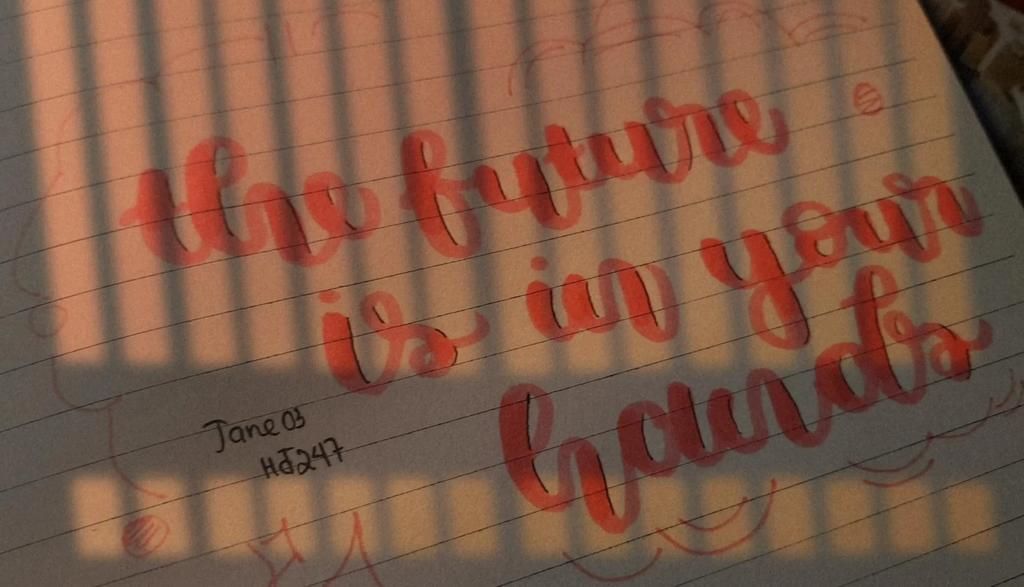 the future
is in your
hands
Jane03
HJ247